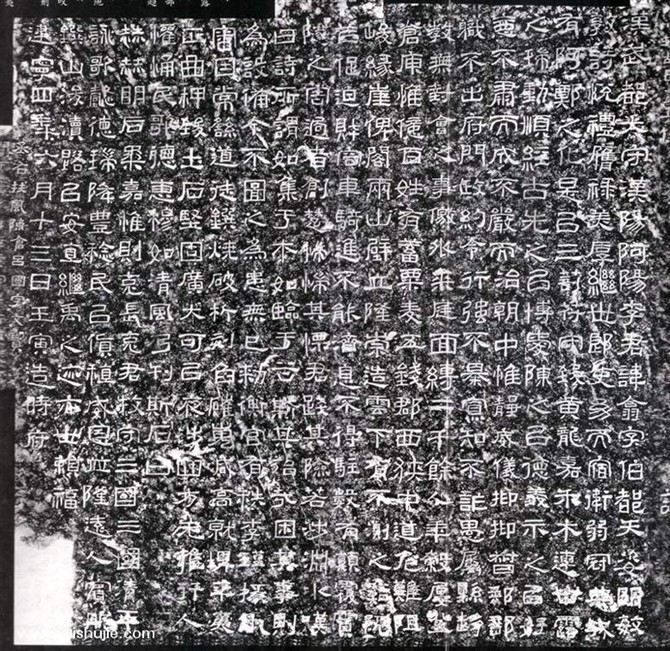 漢武都太守漢陽阿陽李君諱翕字伯都天姿明敏
敦詩悅禮膺祿美厚繼世郎吏幼而宿衛弱冠典城
有阿鄭之化是以三剖符守致黃龍嘉禾木連甘露
之瑞動順經古先之以博愛陳之以德義示之以好
惡不肅而成不嚴而治朝中惟靜威儀抑抑督郵部
職不出府門政約令行強不暴寡知不詐愚屬縣趨
教無對會之事徼外來庭面縛二千餘人年穀屢登
倉庾惟億百姓有蓄粟麥五錢郡西狹中道危難阻
峻緣崖俾閣兩山壁立隆崇造雲下有不測之谿阨
芒促迫財容車騎進不能濟息不得駐數有顛覆霣
隧之害過者創楚惴惴其慄君踐其險若涉淵冰嘆
曰詩所謂如集于木如臨于谷斯其殆哉困其事則
為設備今不圖之為患無已敕衡官有秩李瑾掾仇
審因常繇道徒鐉燒破析刻臽確嵬減高就埤平夷
正曲柙致土石堅固廣大可以夜涉四方无雍行人
懽悀民歌德惠穆如清風乃刊斯石曰
赫赫明后柔嘉惟則克長克君牧守三國三國清平
詠歌懿德瑞降豐稔民以貨稙威恩並隆遠人賓服
鐉山浚瀆路以安直繼禹之迹亦世賴福
建寧四年六月十三日壬寅造時府
丞右扶風陳倉呂國字文寶